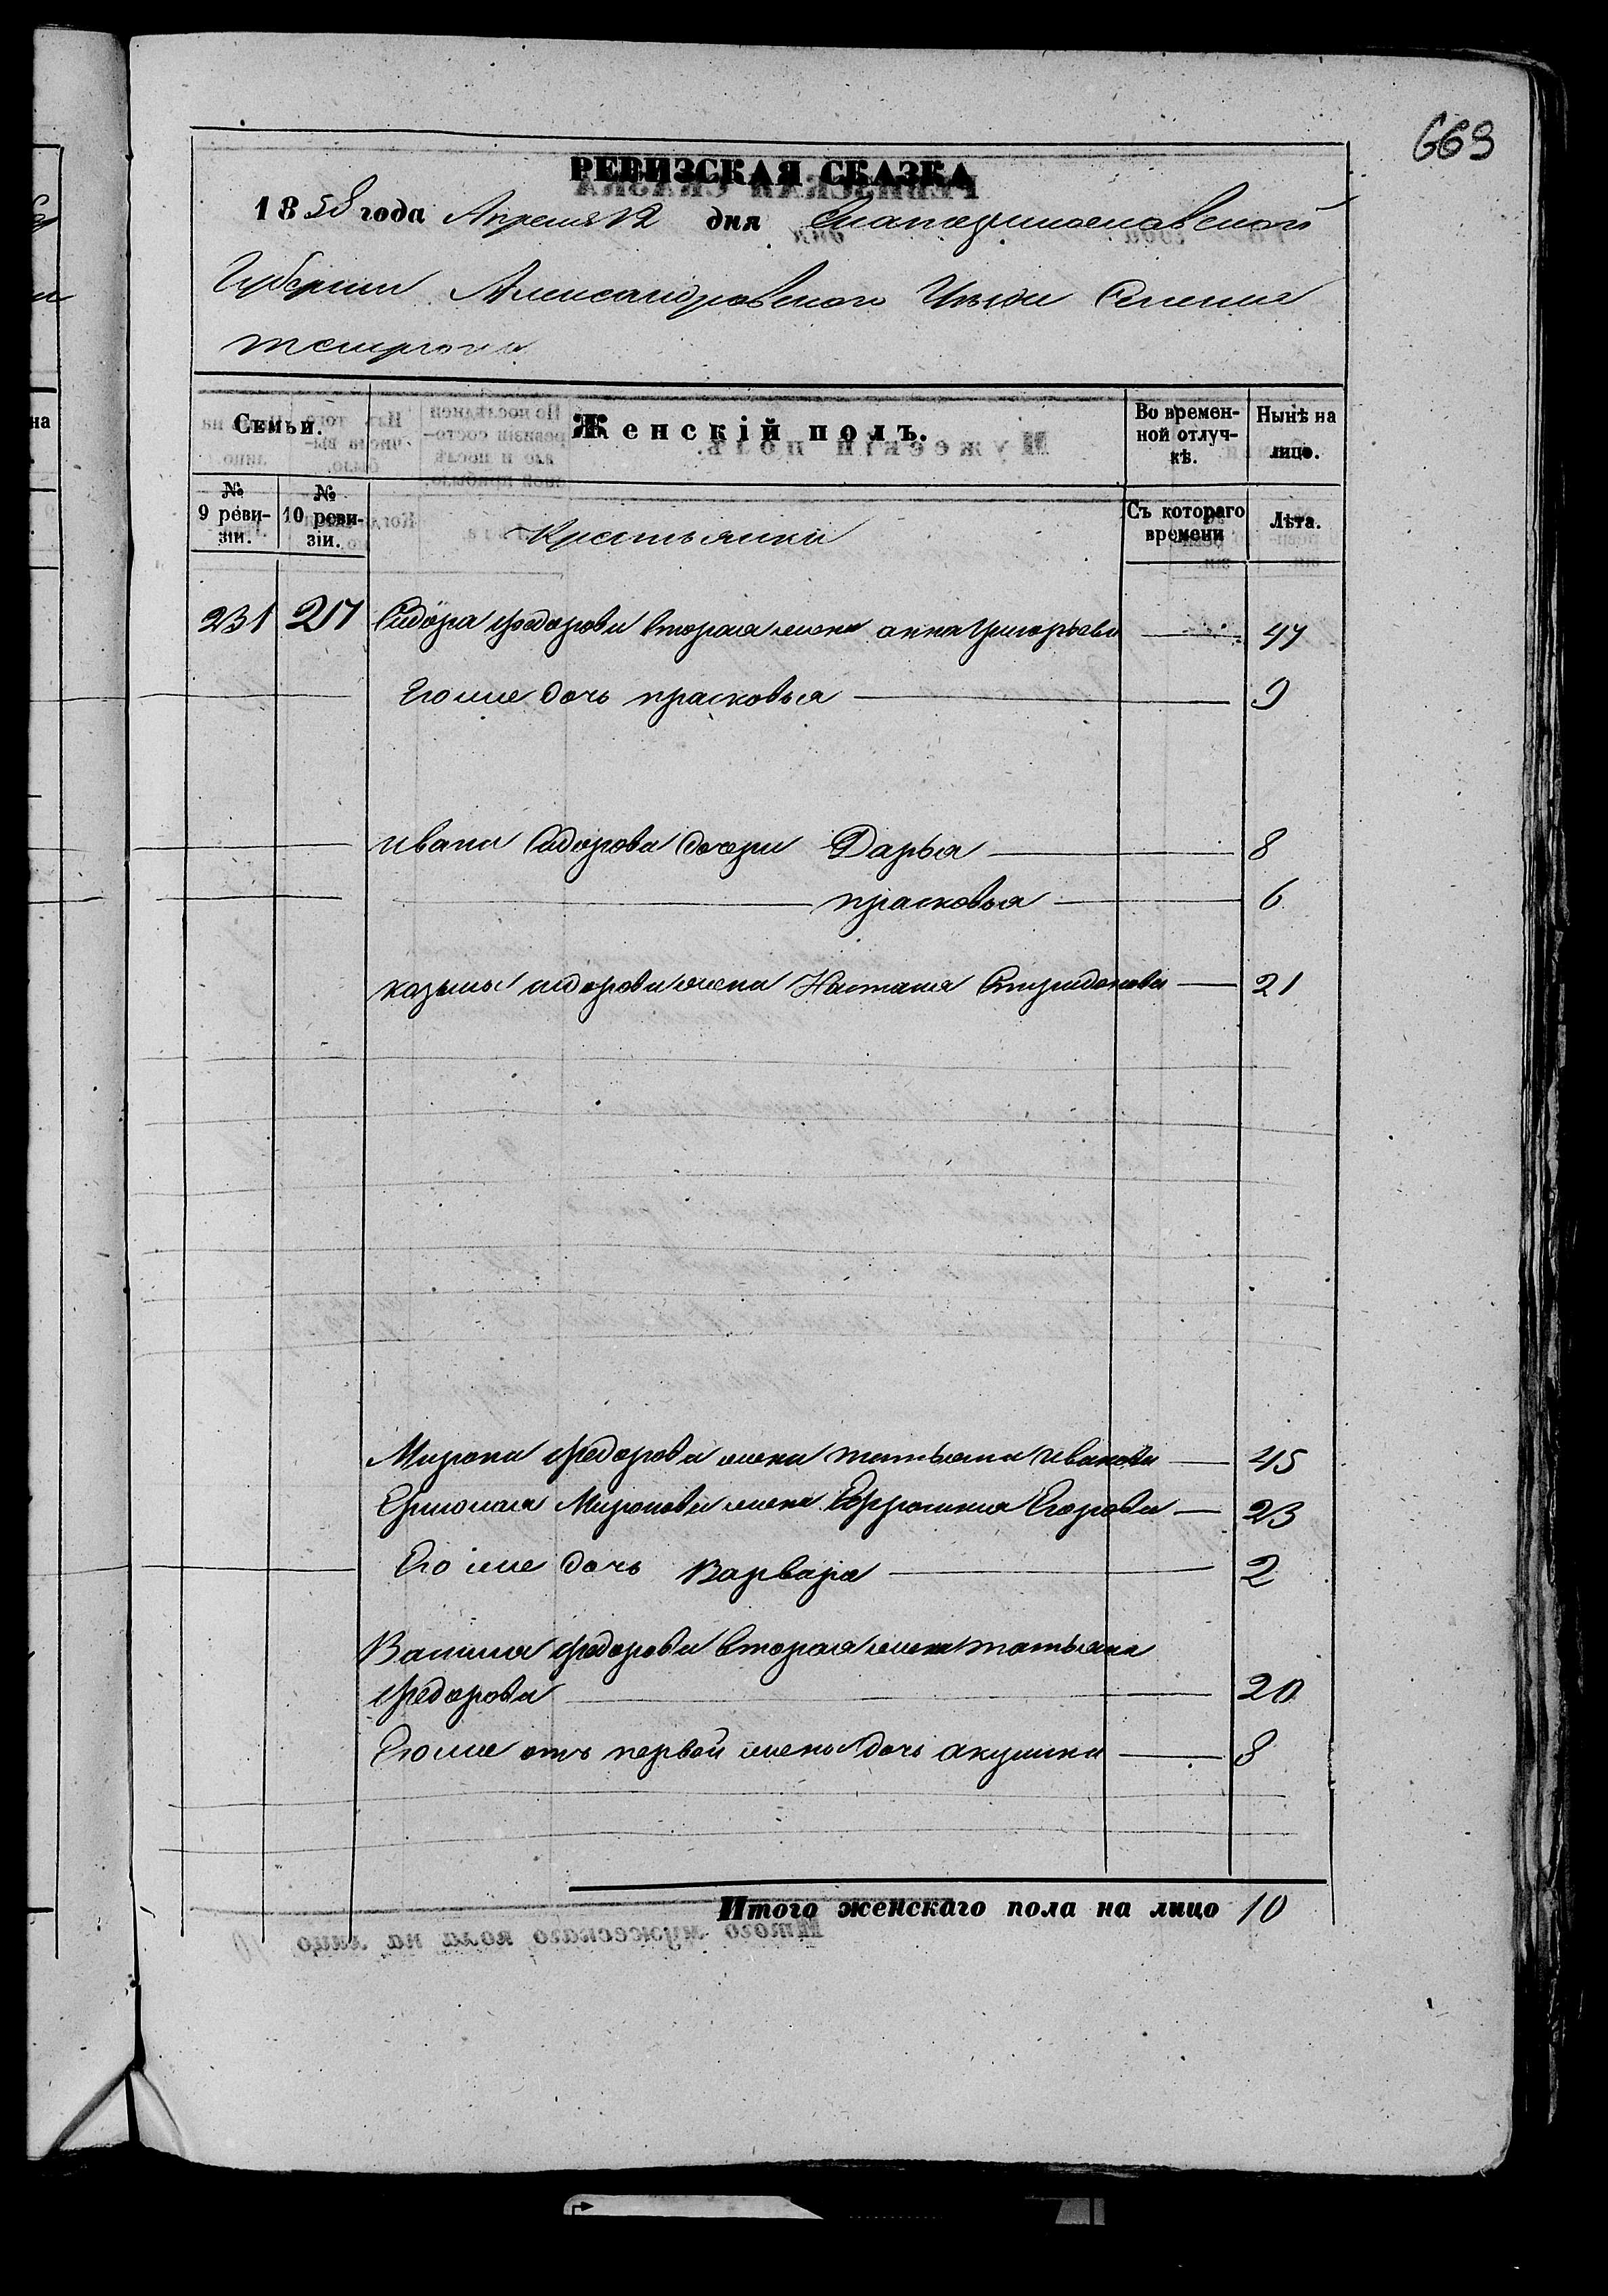 669
РЕВИЗСКАЯ СКАЗКА
1858 года Апреля 12 дня Екатеринославской
Губернии Александровского Уезда Селения
Семьи.
Женскій полъ.
Во времен-
ной отлуч-
кѣ.
Нынѣ на
лицо.
№
9 реви-
зіи.
№
10 реви-
зіи.
Крестьянки
Съ котораго
времени
Лѣта.
231 217 Сидора Федорова вторая жена анна Григорьева 47
Его же дочь прасковья 9
ивана Сидорова дочери Дарья 8
прасковья 6
козьмы сидорова жена Настасия Спиридонова 21
Мирона Федорова жена татьяна иванова 45
Ермолая Миронова жена Ефросинья Егорова 23
Его же дочь Варвара 2
Василия федорова вторая жена татьяна
федорова 20
Его же отъ первой жены дочь акулина 8
Итого женскаго пола на лицо 10